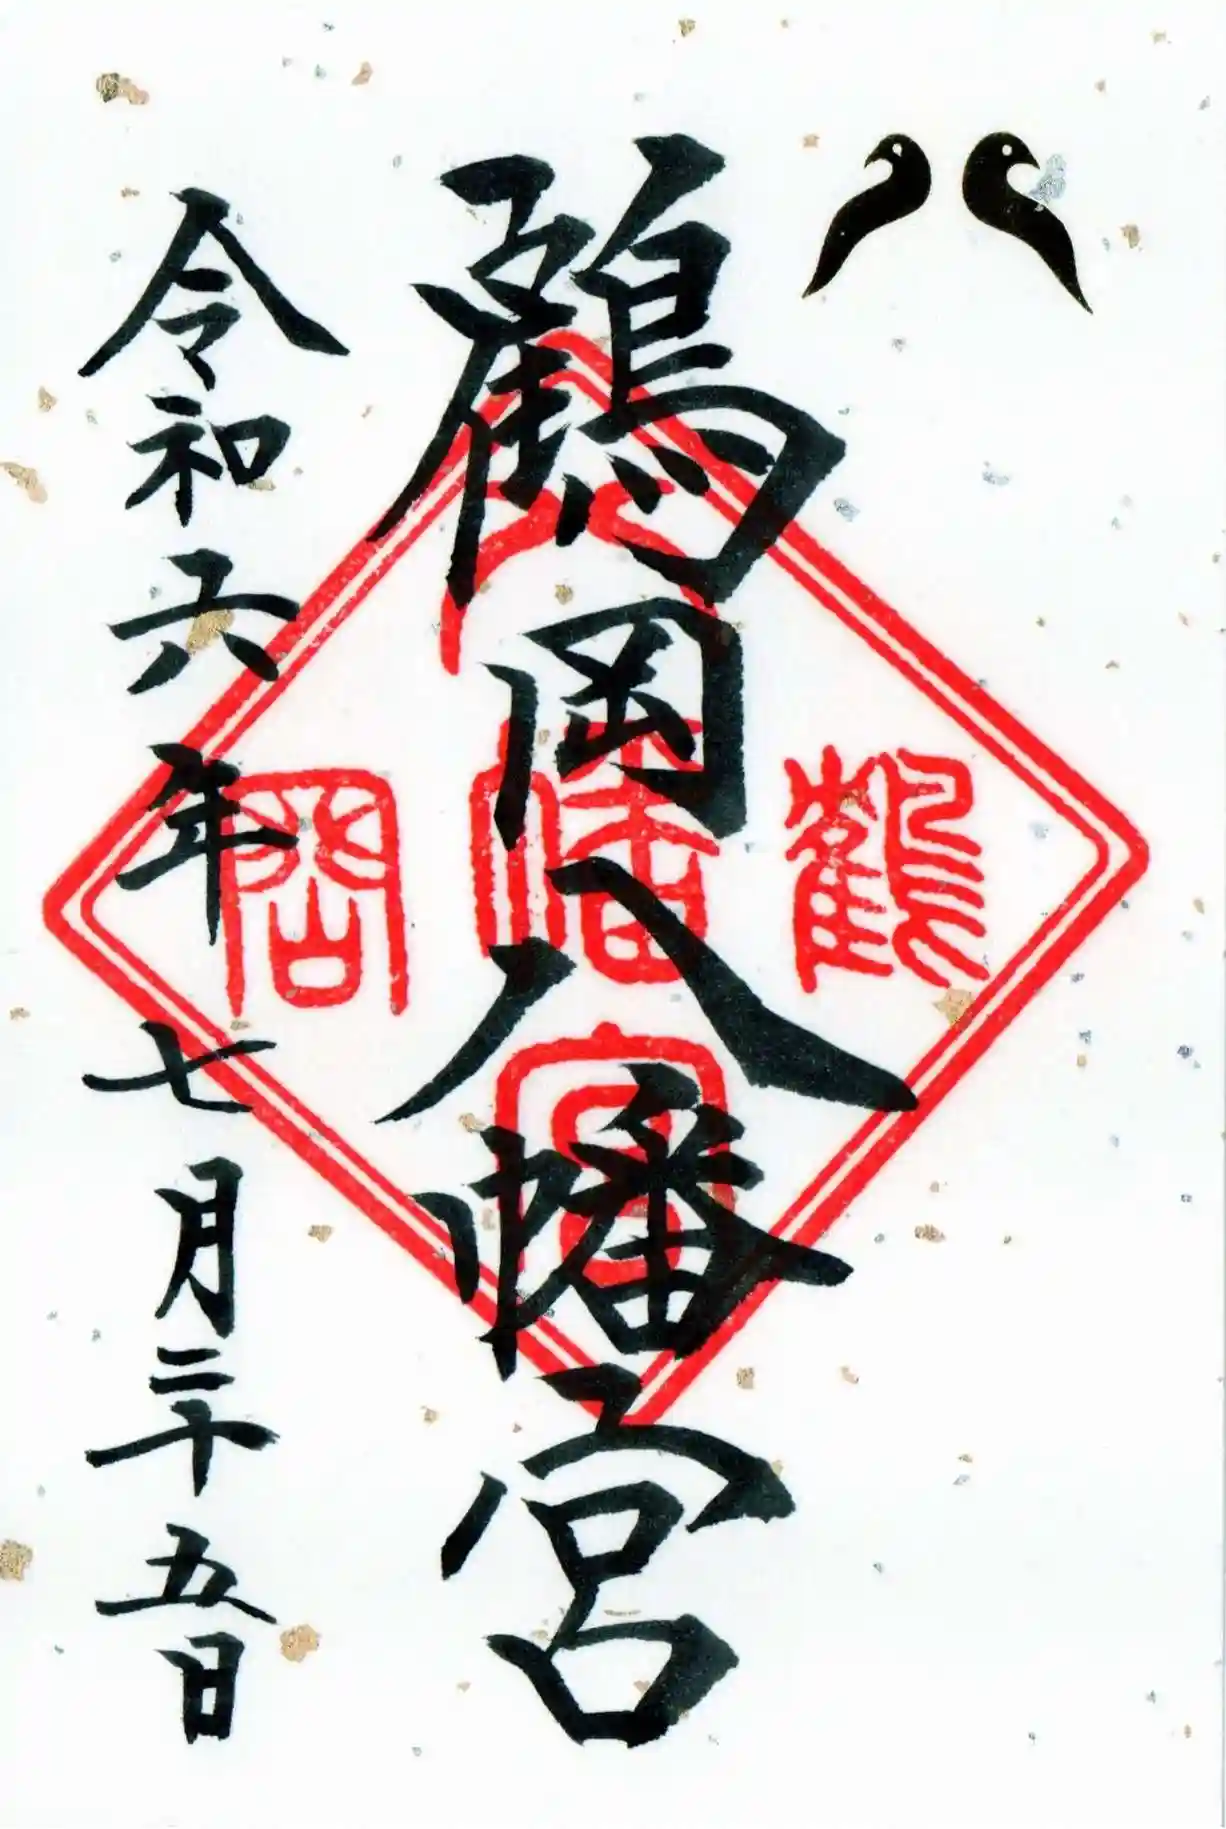 鶴岡八幡宮
令和六年七月二十五日
鶴
岡
八
幡
宮